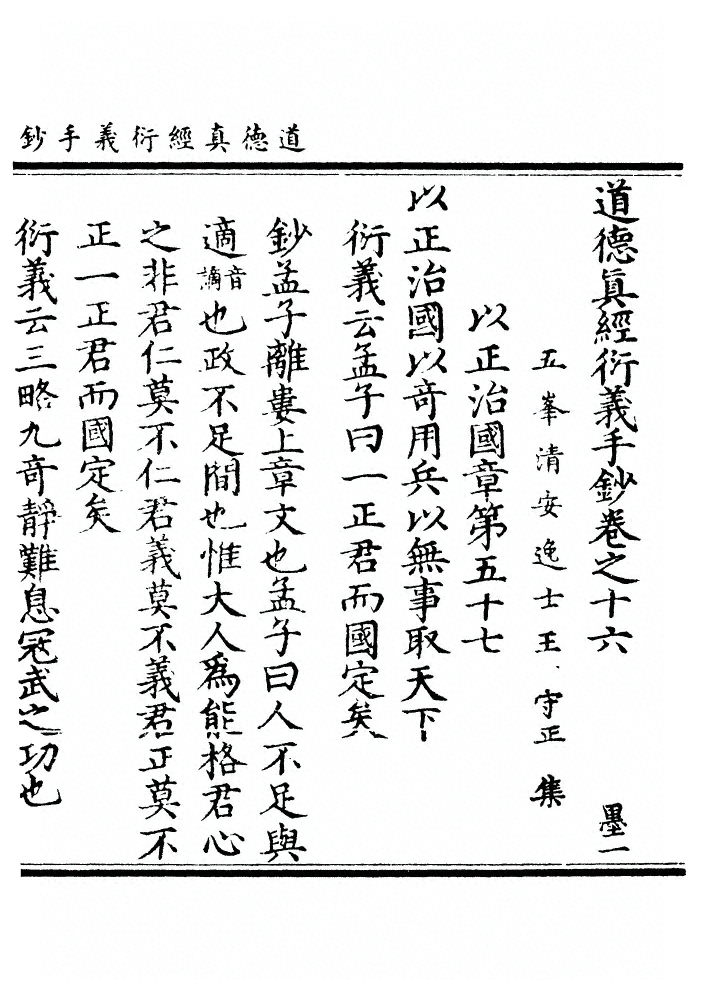 道德真經衍義手鈔
道德眞經衍義手鈔卷之十六 墨一
五峯清安逸士王守正集
以正治國章第五十七
以正治國以奇用兵以無事取天下
衍義云孟子曰一正君而國定矣
鈔孟子離婁上章文也孟子曰人不足與
適音謫也政不足間也惟大人爲能格君心
之非君仁莫不仁君義莫不義君正莫不
正一正君而國定矣
衍義云三略九奇靜難息冦武之功也